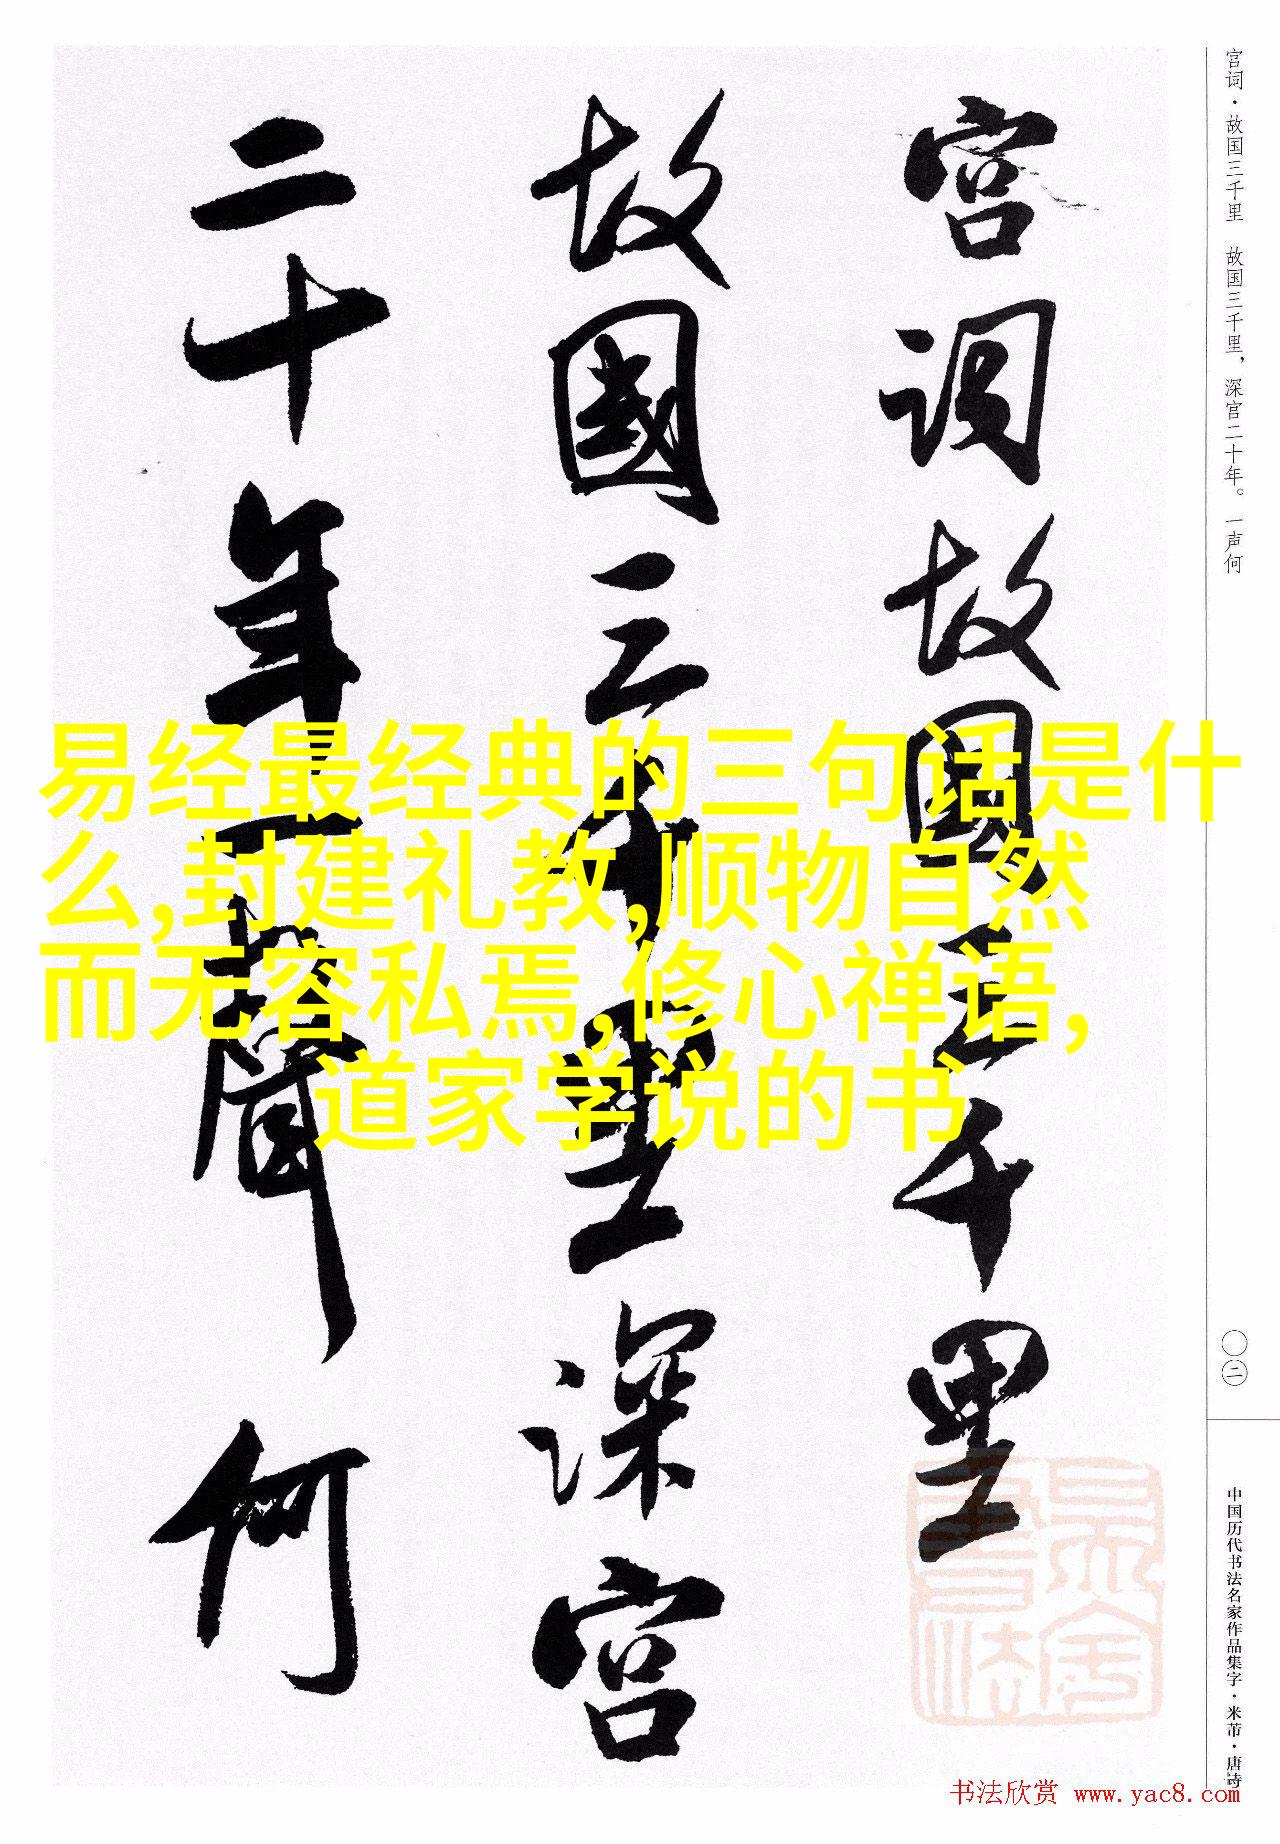 宫词·故国三千里 故国三千里，深宫二十年。一声何
宫词故国三千里
故國三千里深宫
二十年一聲何
易经最经典的三句话是什
么,封建礼教,顺物自然
而无容私焉,修心禅语,
道家学说的书
〇二
中国历代书法名家作品集字·米芾·唐诗
书法欣赏 www.yac8.com